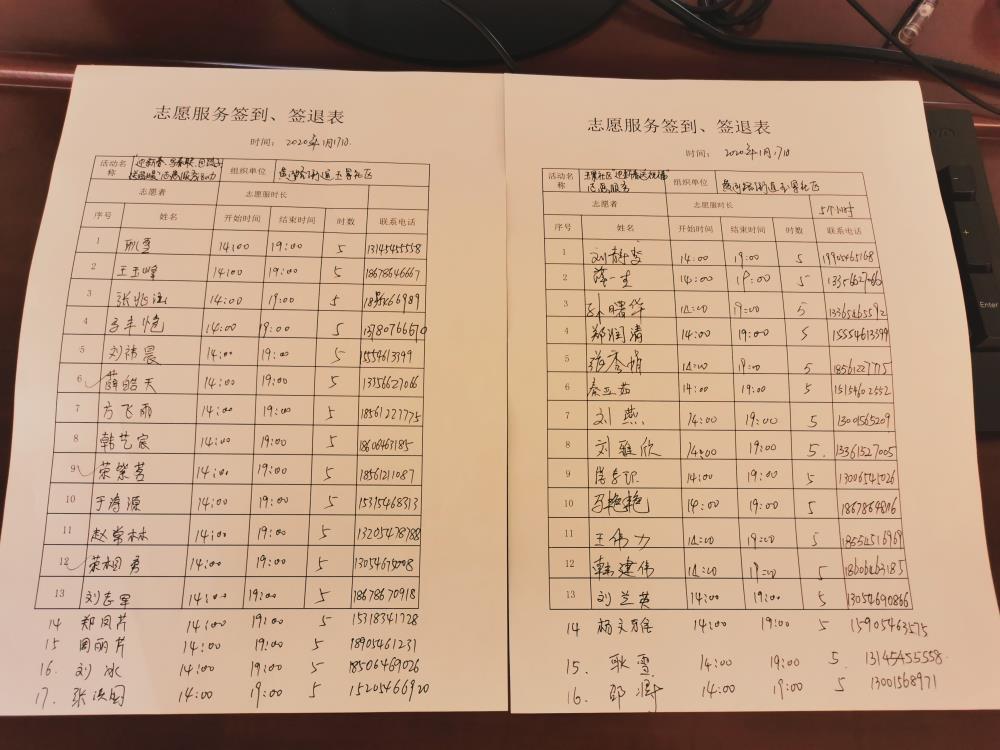 志愿服务签到、签退表
时间: 2020年1月17日
活动名称 组织单位
志愿者 志愿服时长
序号 姓名 开始时间 结束时间 时数 联系电话
1 耿雪 14:00 19:00 5 13145455558
2 王玉峰 14:00 19:00 5 18678646667
3 14:00 19:00 5
4 14:00 19:00 5 13780766670
5 刘祎晨 14:00 19:00 5 15554613399
6 薛皓天 14:00 19:00 5 13356627066
7 方飞雨 14:00 19:00 5 18561227775
8 韩艺宸 14:00 19:00 5 18606463185
9 荣紫茗 14:00 19:00 5 18561211087
10 于涛源 14:00 19:00 5 15315468313
11 赵常林 14:00 19:00 5 13205478788
12 14:00 19:00 5
13 刘志军 14:00 19:00 5 18678670918
14 郑风芹 14:00 19:00 5 15318341728
15 周丽芹 14:00 19:00 5 18905461231
16. 刘冰 14:00 19:00 5 18506469026
17. 张洪国 14:00 19:00 5 15205466920
志愿服务签到、签退表
时间: 2020年1月17日
活动名称 组织单位
志愿者 志愿服时长 5个小时
序号 姓名 开始时间 结束时间 时数 联系电话
1 14:00 19:00 5
2 14:00 19:00 5 13356627066
3 孙曙华 14:00 19:00 5 13365465592
4 郑润清 14:00 19:00 5 15554613399
5 张秀娟 14:00 19:00 5 18561227775
6 秦亚茹 14:00 19:00 5 15154602552
7 刘燕 14:00 19:00 5 13001565209
8 刘雅欣 14:00 19:00 5. 13361527005
9 14:00 19:00 5 13006541026
10 马艳艳 14:00 19:00 5 18678648106
11 王伟力 14:00 19:00 5 18554516969
12 韩建伟 14:00 19:00 5 18606463185
13 刘兰英 14:00 19:00 5 13054690866
14 14:00 19:00 5 15905463575
15. 耿雪 14:00 19:00 5. 13145455558
16. 14:00 19:00 5 13001568971
Enter